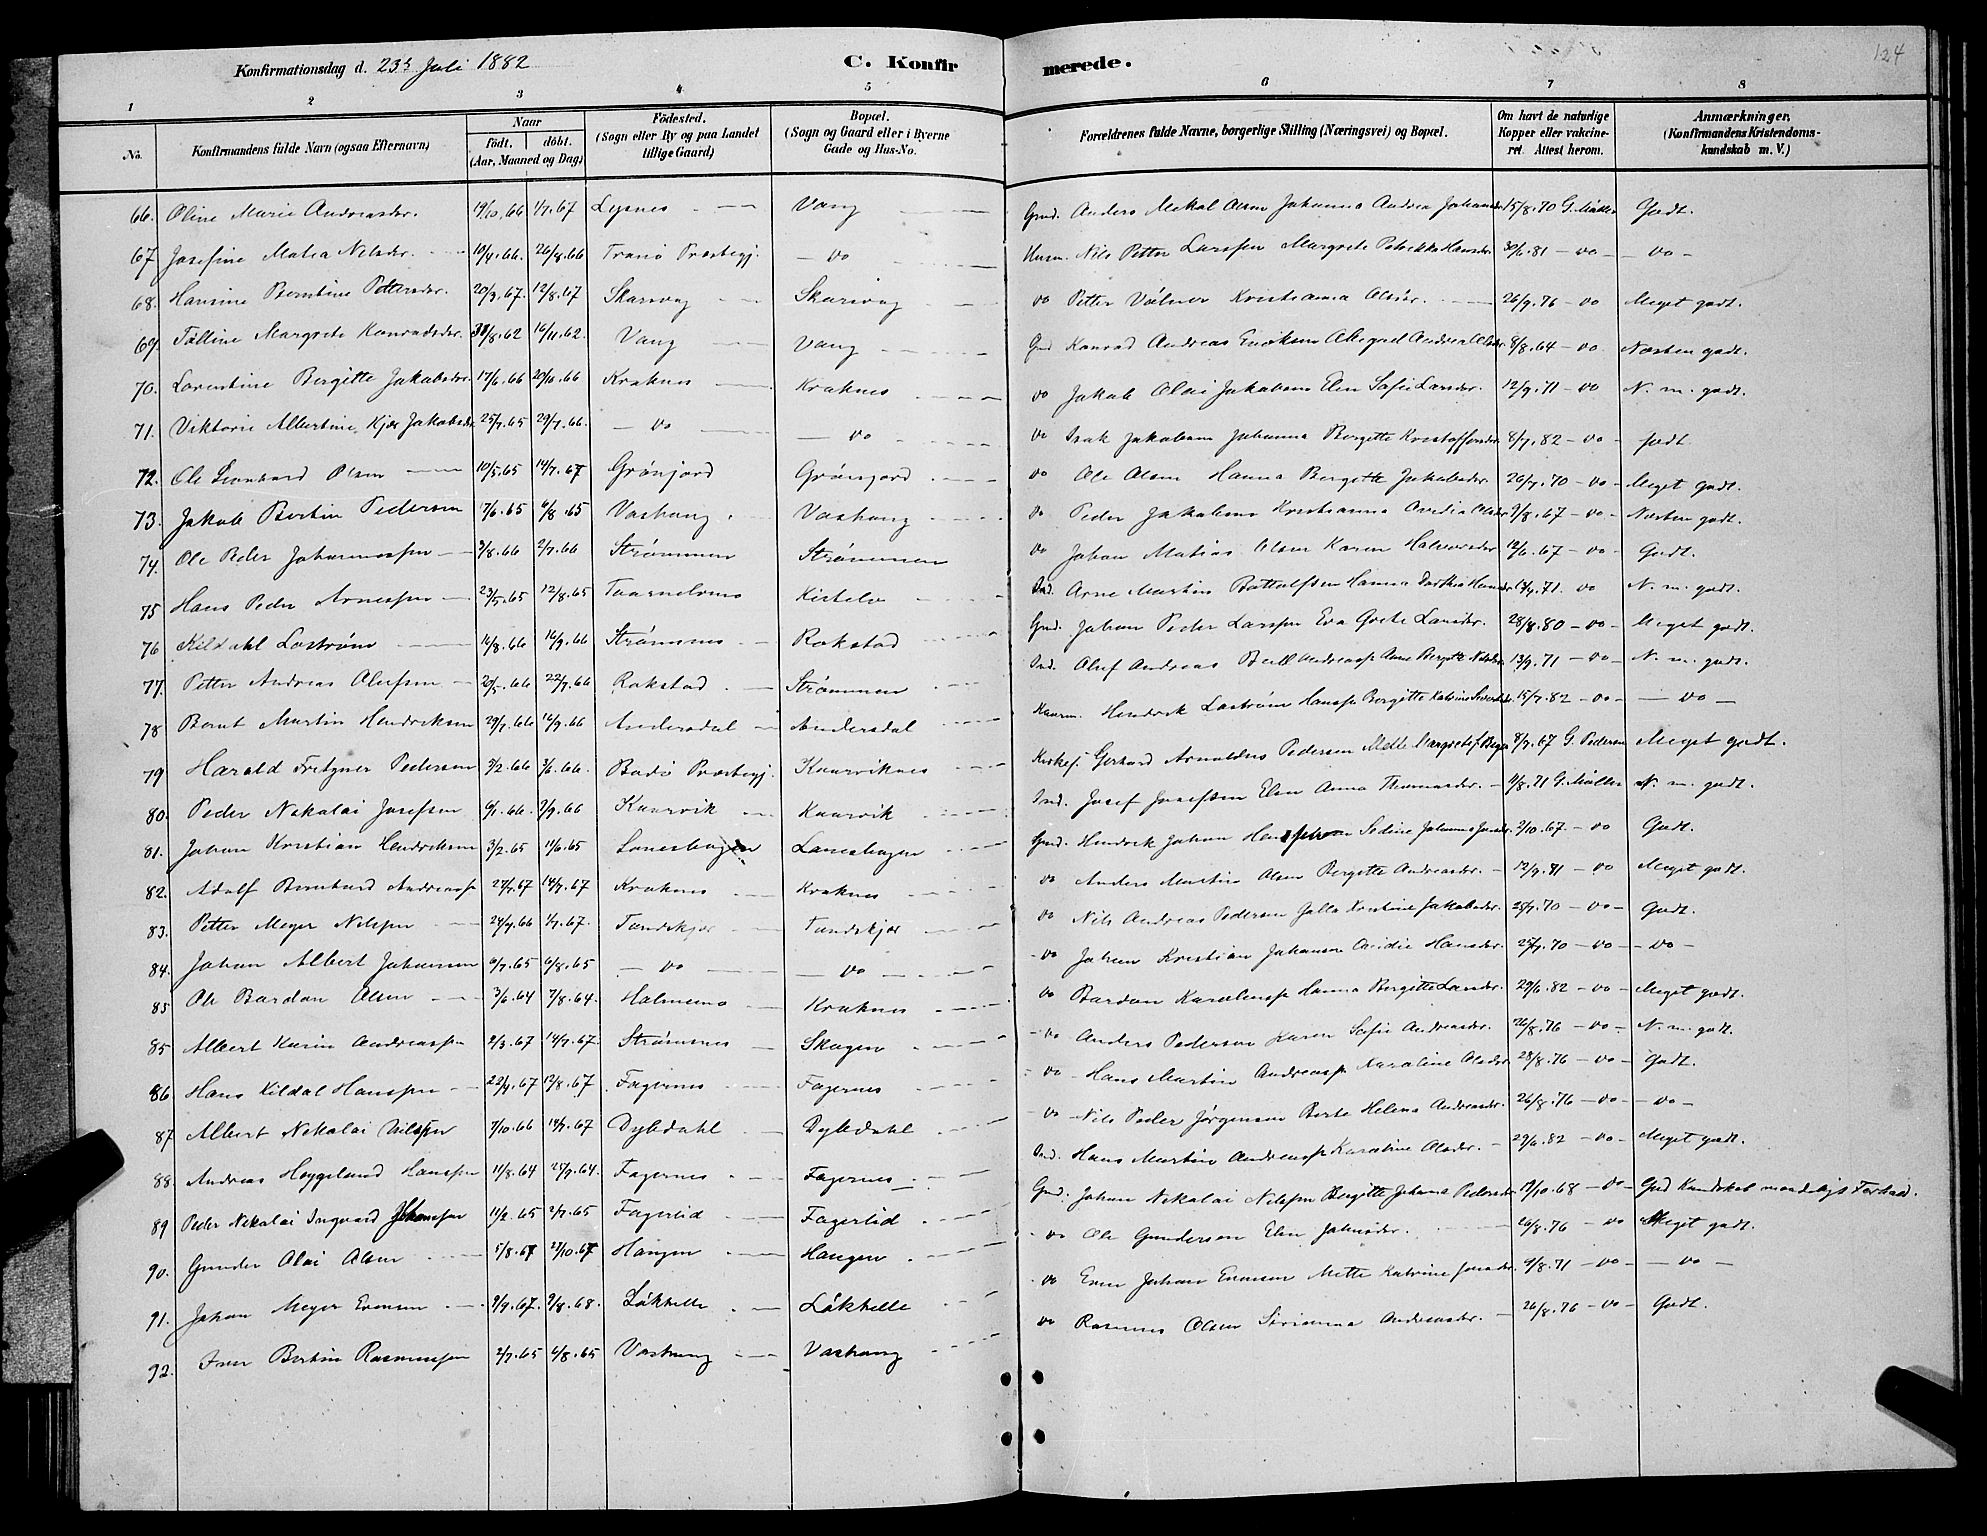 124
Konfirmationsdag d. 23 Juli 1882 C. Konfirmerede.
1 2 3 4 5 6 7 8
No. Konfirmandens fulde Navn (ogsaa Efternavn) Naar födt. döbt. (Aar, Maaned og Dag) Födested. (Sogn eller By og paa Landet tillige Gaard) Bopæl. (Sogn og Gaard eller i Byerne Gade og Hus-No. Forældrenes fulde Navne, borgerlige Stilling (Næringsvei) og Bopæl. Om havt de naturlige Kopper eller vakcineret. Attest herom. Anmærkninger. (Konfirmandens Kristendomskundskab m. V.)
66. Oline Marie Andreasdr. 19/10.66 1/7.67 Lysnes Vang Grd. Anders Mekal Olsen Johanna Andrea Johansdr 15/8.70 G. Møller Godt.
67 Josefine Matea Nilsdr. 10/4.66. 26/8.66 Tranö Præstegj. do Husm. Nils Petter Larssen Margrete Petrikke Hansdr 30/6.81 do do
68. Hansine Berntine Pettersdr. 20/3.67. 12/8.67 Skarsvag Skarsvag do Petter Kristianna Olsdr. 26/9.76 do Meget godt.
69. Talline Margrete Konradsdr. 31/8.62 16/11.62. Vang Vang Grd Konrad Andreas Eriksen Abigael Andrea Olsdr 8/8.64 do Næsten godt.
70. Lorentine Bergitte Jakobsdr. 17/6.66 20/10.66 Kraknes Kraknes do Jakob Olai Jakobsen Elen Sofie Larsdr. 12/9.71 do N. m. godt.
71. Viktorie Albertine Kjær Jakobsdr 25/7.65 29/7.66. do do do Isak Jakobsen Johanna Bergitte Kristoffersdr 8/7.82 do godt
72. Ole Leonhard Olsen 10/5.65 14/7.67 Grönjord Grönjord do Ole Olsen Hanna Bergitte Jakobsdr 26/7.70 do Meget godt.
73. Jakob Bertin Pedersen 17/6.65 6/8.65 Vashaug Vashaug do Peder Jakobsen Kristianna Ovidia Olsdr 9/8.67 do Næsten godt.
74. Ole Peder Johannessen 3/8.66 2/9.66 Strømmen Strømmen do Johan Matias Olsen Karen Halvorsdr 12/6.67 do Godt.
75 Hans Peder Arnessen 23/5.65 12/8.65 Taarnelvmo Kistelv Ind. Arne Martin Bottolfsen Hanna Dorthea Hansdr 17/4.71. do N. m. godt.
76 Kildahl Lostrøm 14/8.66 16/9.66 Strømsnes Rakstad Grd. Johan Peder Larssen Eva Grete Larsdr. 28/8.80 do Meget godt.
77. Petter Andreas Olufsen 20/5.66 22/7.66 Rakstad Strømmen Ind. Oluf Andreas Bull Andreass. Anne Bergitte Nilsdr 13/9.71 do N. m. godt.
78 Bernt Martin Hendriksen 29/7.66 16/9.66 Andersdal Andersdal Hendrik Lostrøm Hanss. Bergitte Katrine Sivertsdr 15/7.82 do do
79 Harald Fritzner Pedersen 3/2.66 3/6.66. Bodö Præstegj. Kaarviknes Kirkes. Gerhard Arnoldus Pedersen Mette Margrete 8/9.67 G. Pedersen Meget godt.
80. Peder Nekolai Josefsen 6/1.66. 2/9.66 Kaarvik Kaarvik Ind. Josef Josefsen Elen Anna Thomasdr. 11/8.71 G. Møller N. m. godt.
81. Johan Kristian Hendriksen 3/2.65 11/6.65 Laneshagen Laneshagen Grd. Hendrik Johan Hanssen Sedine Johanna 2/10.67 do Godt.
82. Adolf Bernhard Andreass. 27/5.67 14/7.67 Kraknes Kraknes do Anders Martin Olsen Bergitte Andreasdr. 12/9.81 do Meget godt.
83. Petter Meyer Nilssen 24/9.66 1/7.67. Tundskjær Tundskjær do Nils Andreas Pedersen Kristine Jakobsdr. 25/7.70 do Godt.
84. Johan Albert Johansen 6/7.65 6/8.65 do do do Johan Kristian Johansen Ovidie Hansdr. 25/7.70 do do
85 Ole Bardon Olsen 3/6.64 7/8.64. Holmenes Kraknes do Bardon Karolius. Hanna Bergitte Larsdr. 29/6.82 do Meget godt.
85 Albert Karin Andreassen 2/3.67 14/7.67. Strømsnes Skogen do Anders Pedersen Karen Sofie Andreasdr. 26/8.76 do N. m. godt.
86. Hans Kildal Hanssen 22/4.67 12/8.67 Fagernes Fagernes do Hans Martin Andreass. Karoline Olsdr 28/8.76 do Godt.
87 Albert Nekolai Nilssen 7/10.66 14/7.67 Dybdahl Dybdahl do Nils Peder Jørgensen Berte Helena Andreasdr. 26/8.76 do do
88. Andreas Heggelund Hanssen 11/8.64 25/9.64. Fagernes Fagernes Ind. Hans Martin Andreass. Karoline Olsdr. 29/6.82 do Meget godt.
89 Peder Nekolai Ingvard Johanssen 11/2.65 2/7.65 Fagerlid Fagerlid Grd. Johan Nekolai Nilssen Bergitte Johanna Pedersdr 19/10.68 do God Kundskab maadeligt Forhold.
90. Gunder Olai Olsen 5/8.67 27/10.67 Haugen Haugen do Ole Gundersen Elen Johnsdr. 26/8.76 do Meget godt.
91. Johan Meyer Evensen 9/9.67. 9/8.68. Låkhelle Låkhelle do Even Johan Evensen Mette Katrine Jonsdr. 9/8.71 do do
92. Iver Bertin Rasmussen 2/7.65 6/8.65 Vashaug Vashaug do Rasmus Olsen Sirianna Andreasdr. 26/8.76 do Godt.